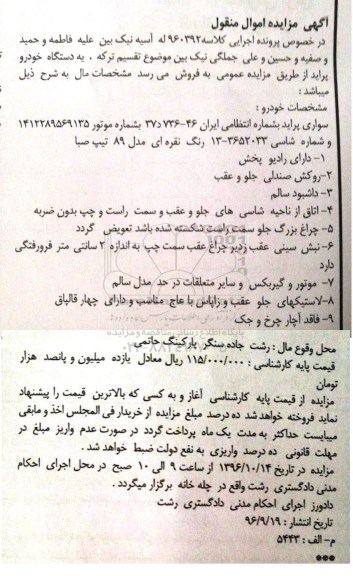 آگهی مزایده اموال منقول
در خصوص پرونده اجرایی کلاسه ۹۶۰۳۹۲ له آسیه نیک بین علیه فاطمه و حمید
و صفیه و حسین و علی جملگی نیک بین موضوع تقسیم ترکه ، یه دستگاه خودرو
پراید از طریق مزایده عمومی به فروش می رسد مشخصات مال به شرح ذیل
میباشد :
مشخصات خودرو :
سواری پراید بشماره انتظامی ایران ۴۶-۷۳۶د۳۷ بشماره موتور ۱۴۱۲۲۸۹۵۶۹۱۳۵
و شماره شاسی ۳۶۵۲۰۳۳-۱۳ رنگ نقره ای مدل ۸۹ تیپ صبا
۱- دارای رادیو پخش
۲-روکش صندلی جلو و عقب
۳- داشبود سالم
۴- اتاق از ناحیه شاسی های جلو و عقب و سمت راست و چپ بدون ضربه
۵- چراغ بزرگ جلو سمت راست شکسته شده باشد تعویض گردد
۶- نبش سینی عقب زدیر چراغ عقب سمت چپ به اندازه ۲ سانتی متر فرورفتگی
دارد
۷- موتور و گیربکس و سایر متعلقات در حد مدل سالم
۸-لاستیکهای جلو عقب و زاپاس با عاج مناسب و دارای چهار قالپاق
۹- فاقد آچار چرخ و جک
محل وقوع مال : رشت جاده سنگر پارکینگ حاتمی
قیمت پایه کارشناسی : ۱۱۵/۰۰۰/۰۰۰ ریال معادل یازده میلیون و پانصد هزار
تومان
مزایده از قیمت پایه کارشناسی آغاز و به کسی که بالاترین قیمت را پیشنهاد
نماید فروخته خواهد شد ده درصد مبلغ مزایده از خریدار فی المجلس اخذ و مابقی
میبایست حداکثر به مدت یک ماه پرداخت گردد در صورت عدم واریز مبلغ در
مهلت قانونی ده درصد واریزی به نفع دولت ضبط خواهد شد .
مزایده در تاریخ ۱۳۹۶/۱۰/۱۴ از ساعت ۹ الی ۱۰ صبح در محل اجرای احکام
مدنی دادگستری رشت واقع در چله خانه برگزار میگردد .
دادورز اجرای احکام مدنی دادگستری رشت
تاریخ انتشار : ۹۶/۹/۱۹
م- الف : ۵۴۴۳